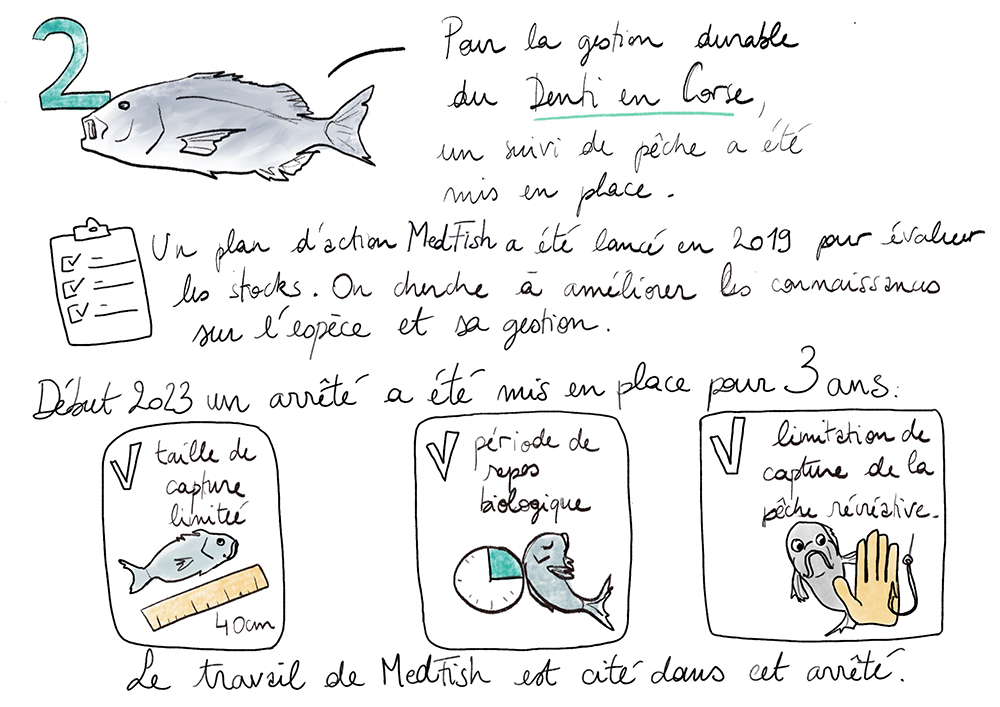 2
Pour la gestion durable
du Denti en Corse,
un suivi de pêche a été
mis en place.
Un plan d'action MedFish a été lancé en 2019 pour évaluer
les stocks. On cherche à améliorer les connaissances
sur l'espèce et sa gestion.
Début 2023 un arrêté a été mis en place pour 3 ans:
taille de
capture
limitée
40cm
période de
repos
biologique
limitation de
capture de la
pêche récréative.
Le travail de MedFish est cité dans cet arrêté.